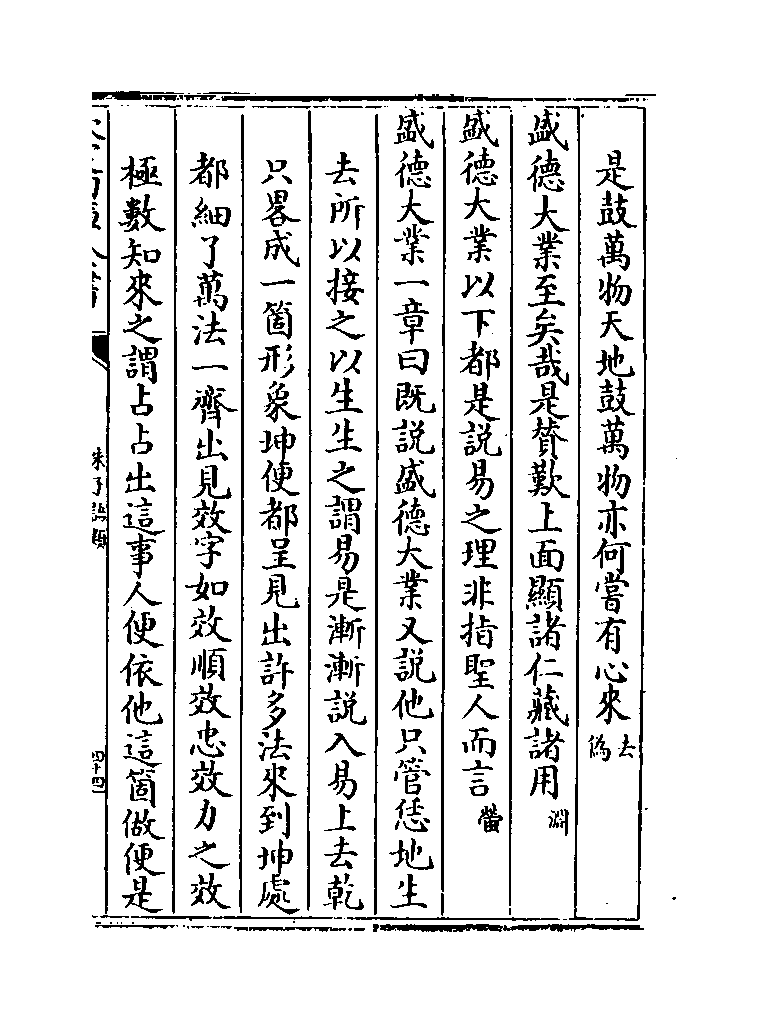 是鼓萬物天地鼓萬物亦何嘗有心來去偽
盛德大業至矣哉是賛歎上面顯諸仁藏諸用淵
盛德大業以下都是説易之理非指聖人而言㽦
盛德大業一章曰既説盛德大業又説他只管恁地生
去所以接之以生生之謂易是漸漸説入易上去乾
只畧成一箇形象坤便都呈見出許多法來到坤處
都細了萬法一齊出見效字如效順效忠效力之效
極數知來之謂占占出這事人便依他這箇做便是
朱子語類
四十四